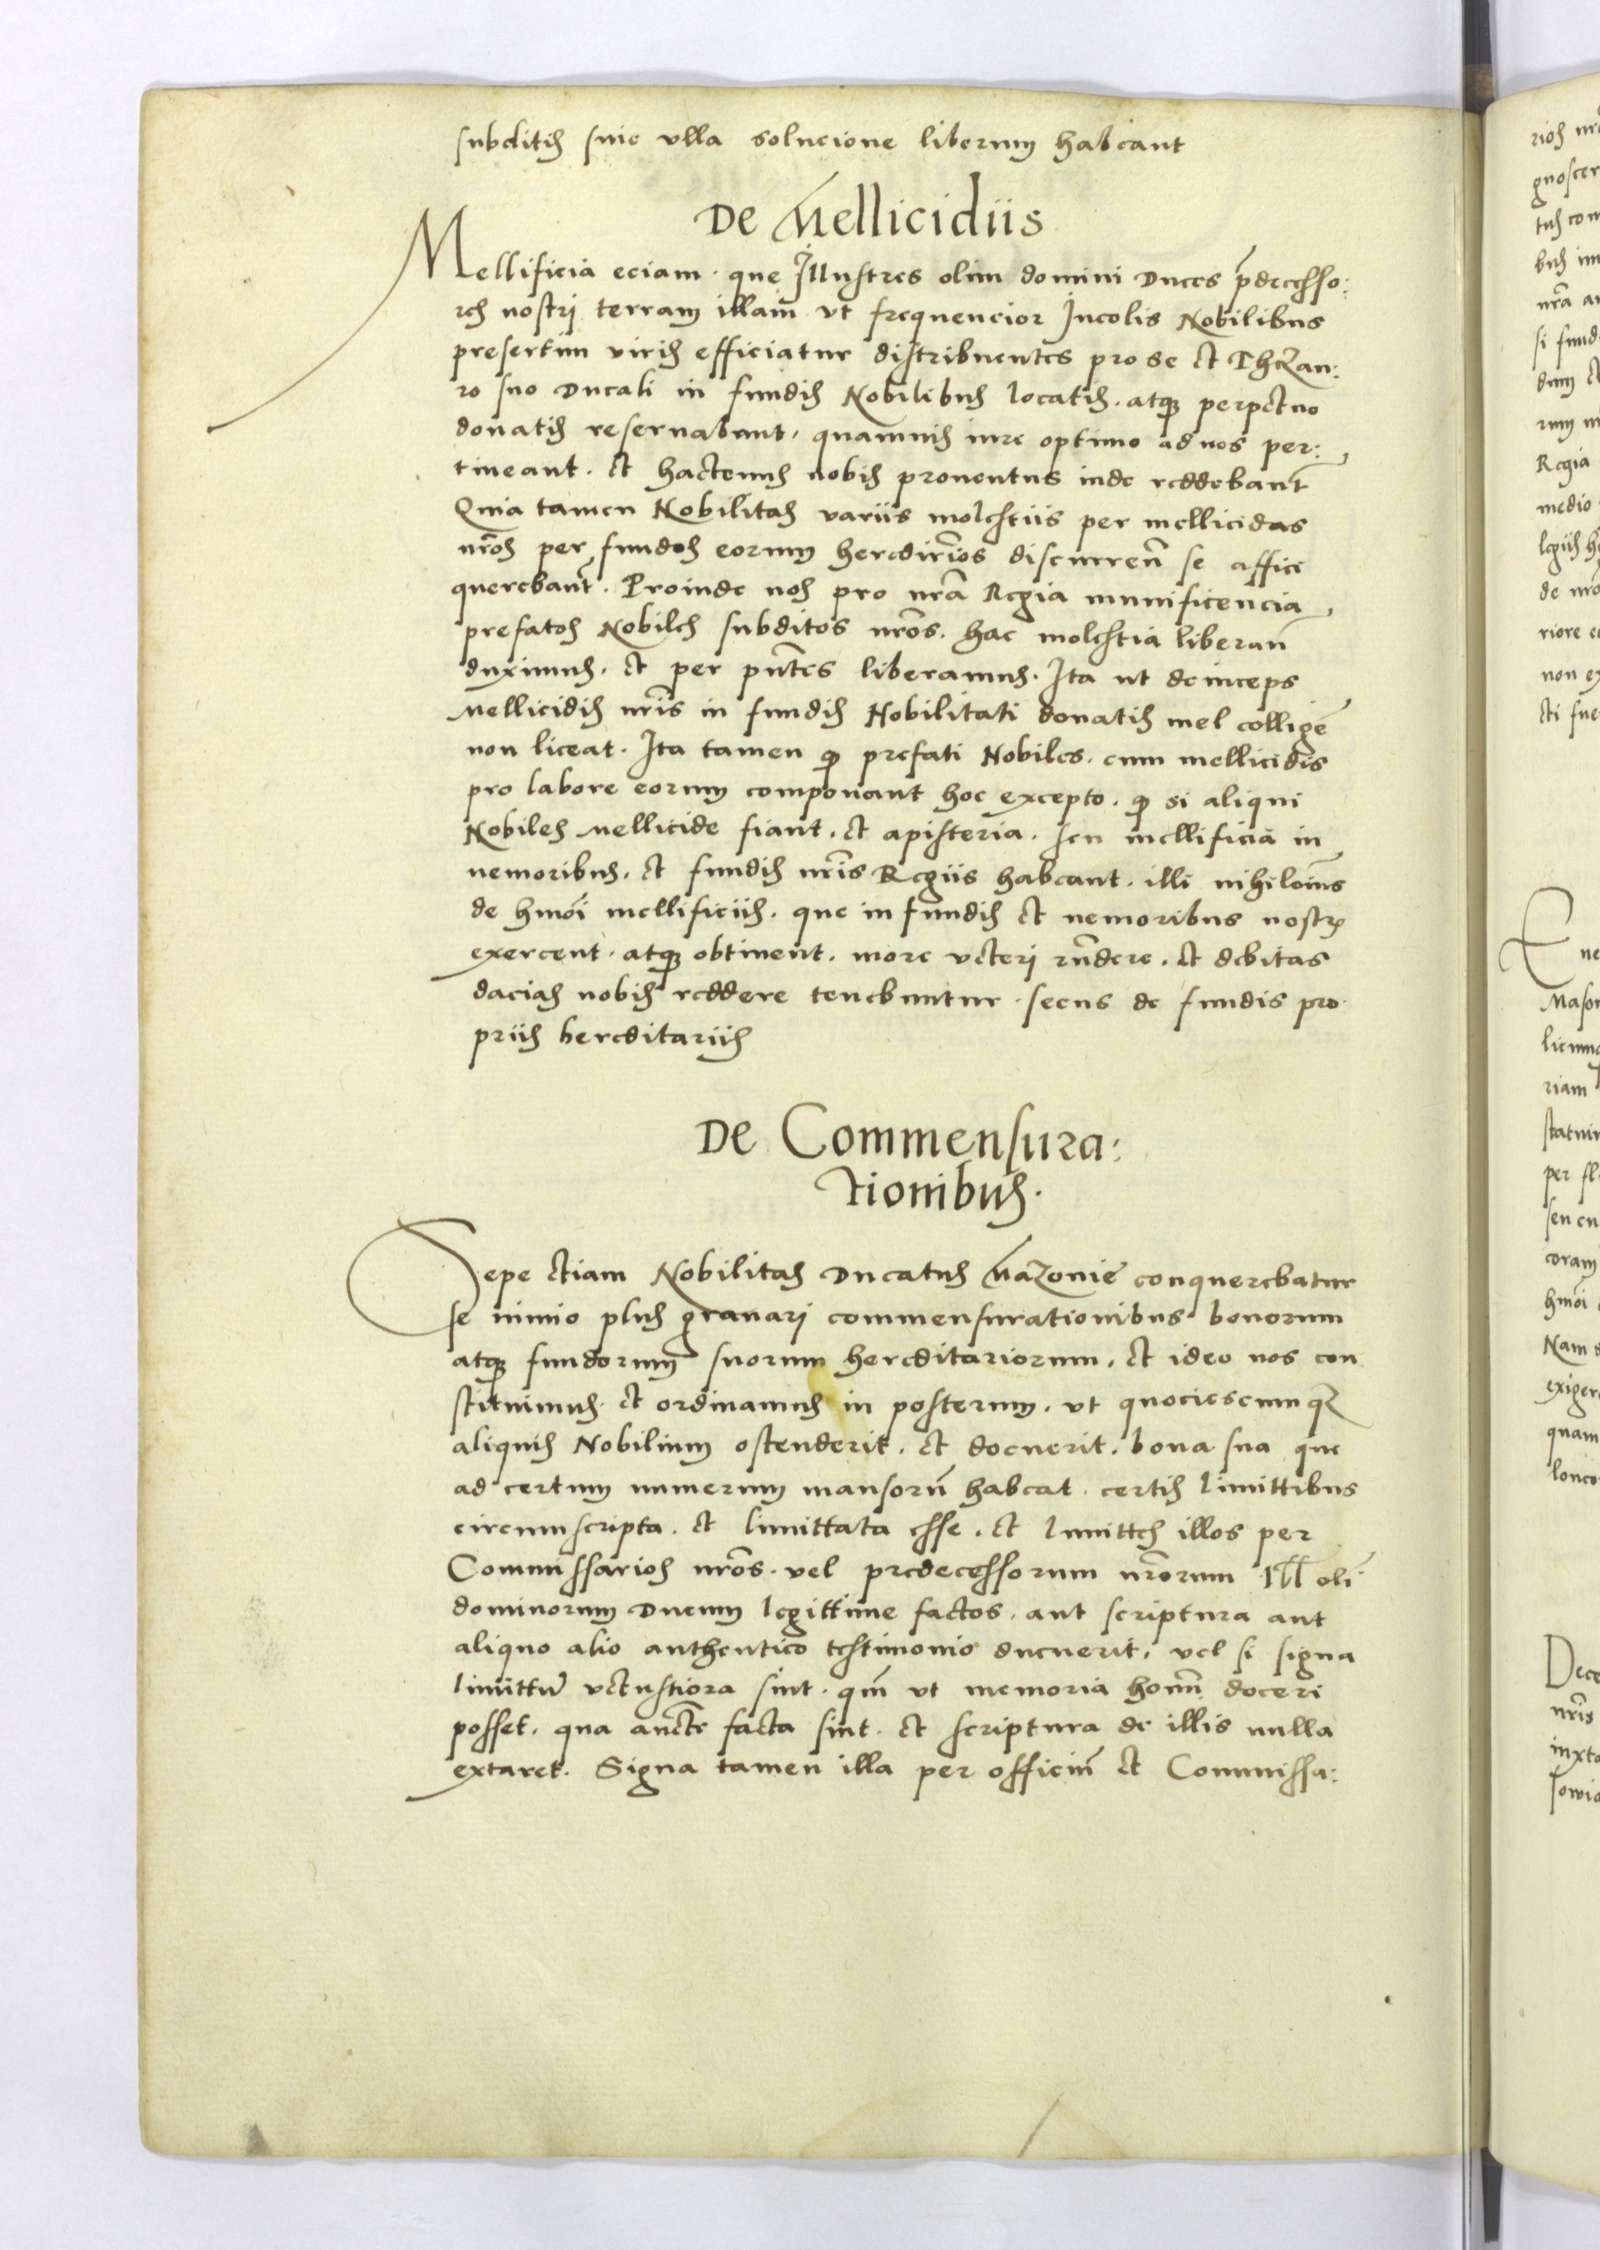 subditis sine vlla solucione liberum habeant
De Mellicidiis
Mellificia eciam. que Illustres olim domini Duces p̄decesso:
res nostri terram illam vt frequencior Incolis Nobilibus
presertim viris efficiatur distribuentes pro se et Thezau:
ro suo Ducali in fundis Nobilibus locatis. atq perpetuo
donatis reseruabant, quamuis iure optimo ad nos per:
tineant. et hactenus nobis prouentus inde reddebant̄
Quia tamen Nobilitas variis molestiis per mellicidas
nr̄os per fundos eorum heredir̄ios discurren̄ se affici
querebant̄. Proinde nos pro nr̄a Regia munificencia,
prefatos Nobiles subditos nr̄os. hac molestia liberan̄
duximus. et per pn̄tes liberamus. Ita ut deinceps
Mellicidis nr̄is in fundis Nobilitati donatis mel collige͂
non liceat. Ita tamen q prefati Nobiles. cum mellicidis
pro labore eorum componant hoc excepto. q si aliqui
Nobiles Mellicide fiant. et apisteria. seu mellificia in
nemoribus. et fundis nr̄is Regiis habeant. illi nihilom̄us
de hmōi mellificiis. que in fundis et nemoribus nostr
exercent. atq obtinent. more veteri rn̄dere. et debitas
dacias nobis reddere tenebuntur. secus de fundis pro
priis hereditariis
De Commensura:
tionibus.
Sepe etiam Nobilitas Ducatus Mazonie conquerebatur
se nimio plus grauari commensurationibus bonorum
atq fundorum suorum hereditariorum. et ideo nos con
stituimus. et ordinamus in posterum. vt quociescumqz
aliquis Nobilium ostenderit. et docuerit. bona sua que
ad certum numerum mansorū habeat. certis limittibus
circumscripta. et limittata esse. et limittes illos per
Commissarios nr̄os. vel predecessorum nr̄orum Ill̄ oli͂
dominorum Ducum legittime factos. aut scriptura aut
aliquo alio anthentico testimonio ducuerit, vel si signa
limittū vetustiora sint. qm̄ vt memoria homn̄ doceri
posset. qua auctē facta sint. et scriptura de illis nulla
extaret. Signa tamen illa per officiū et Commissa: